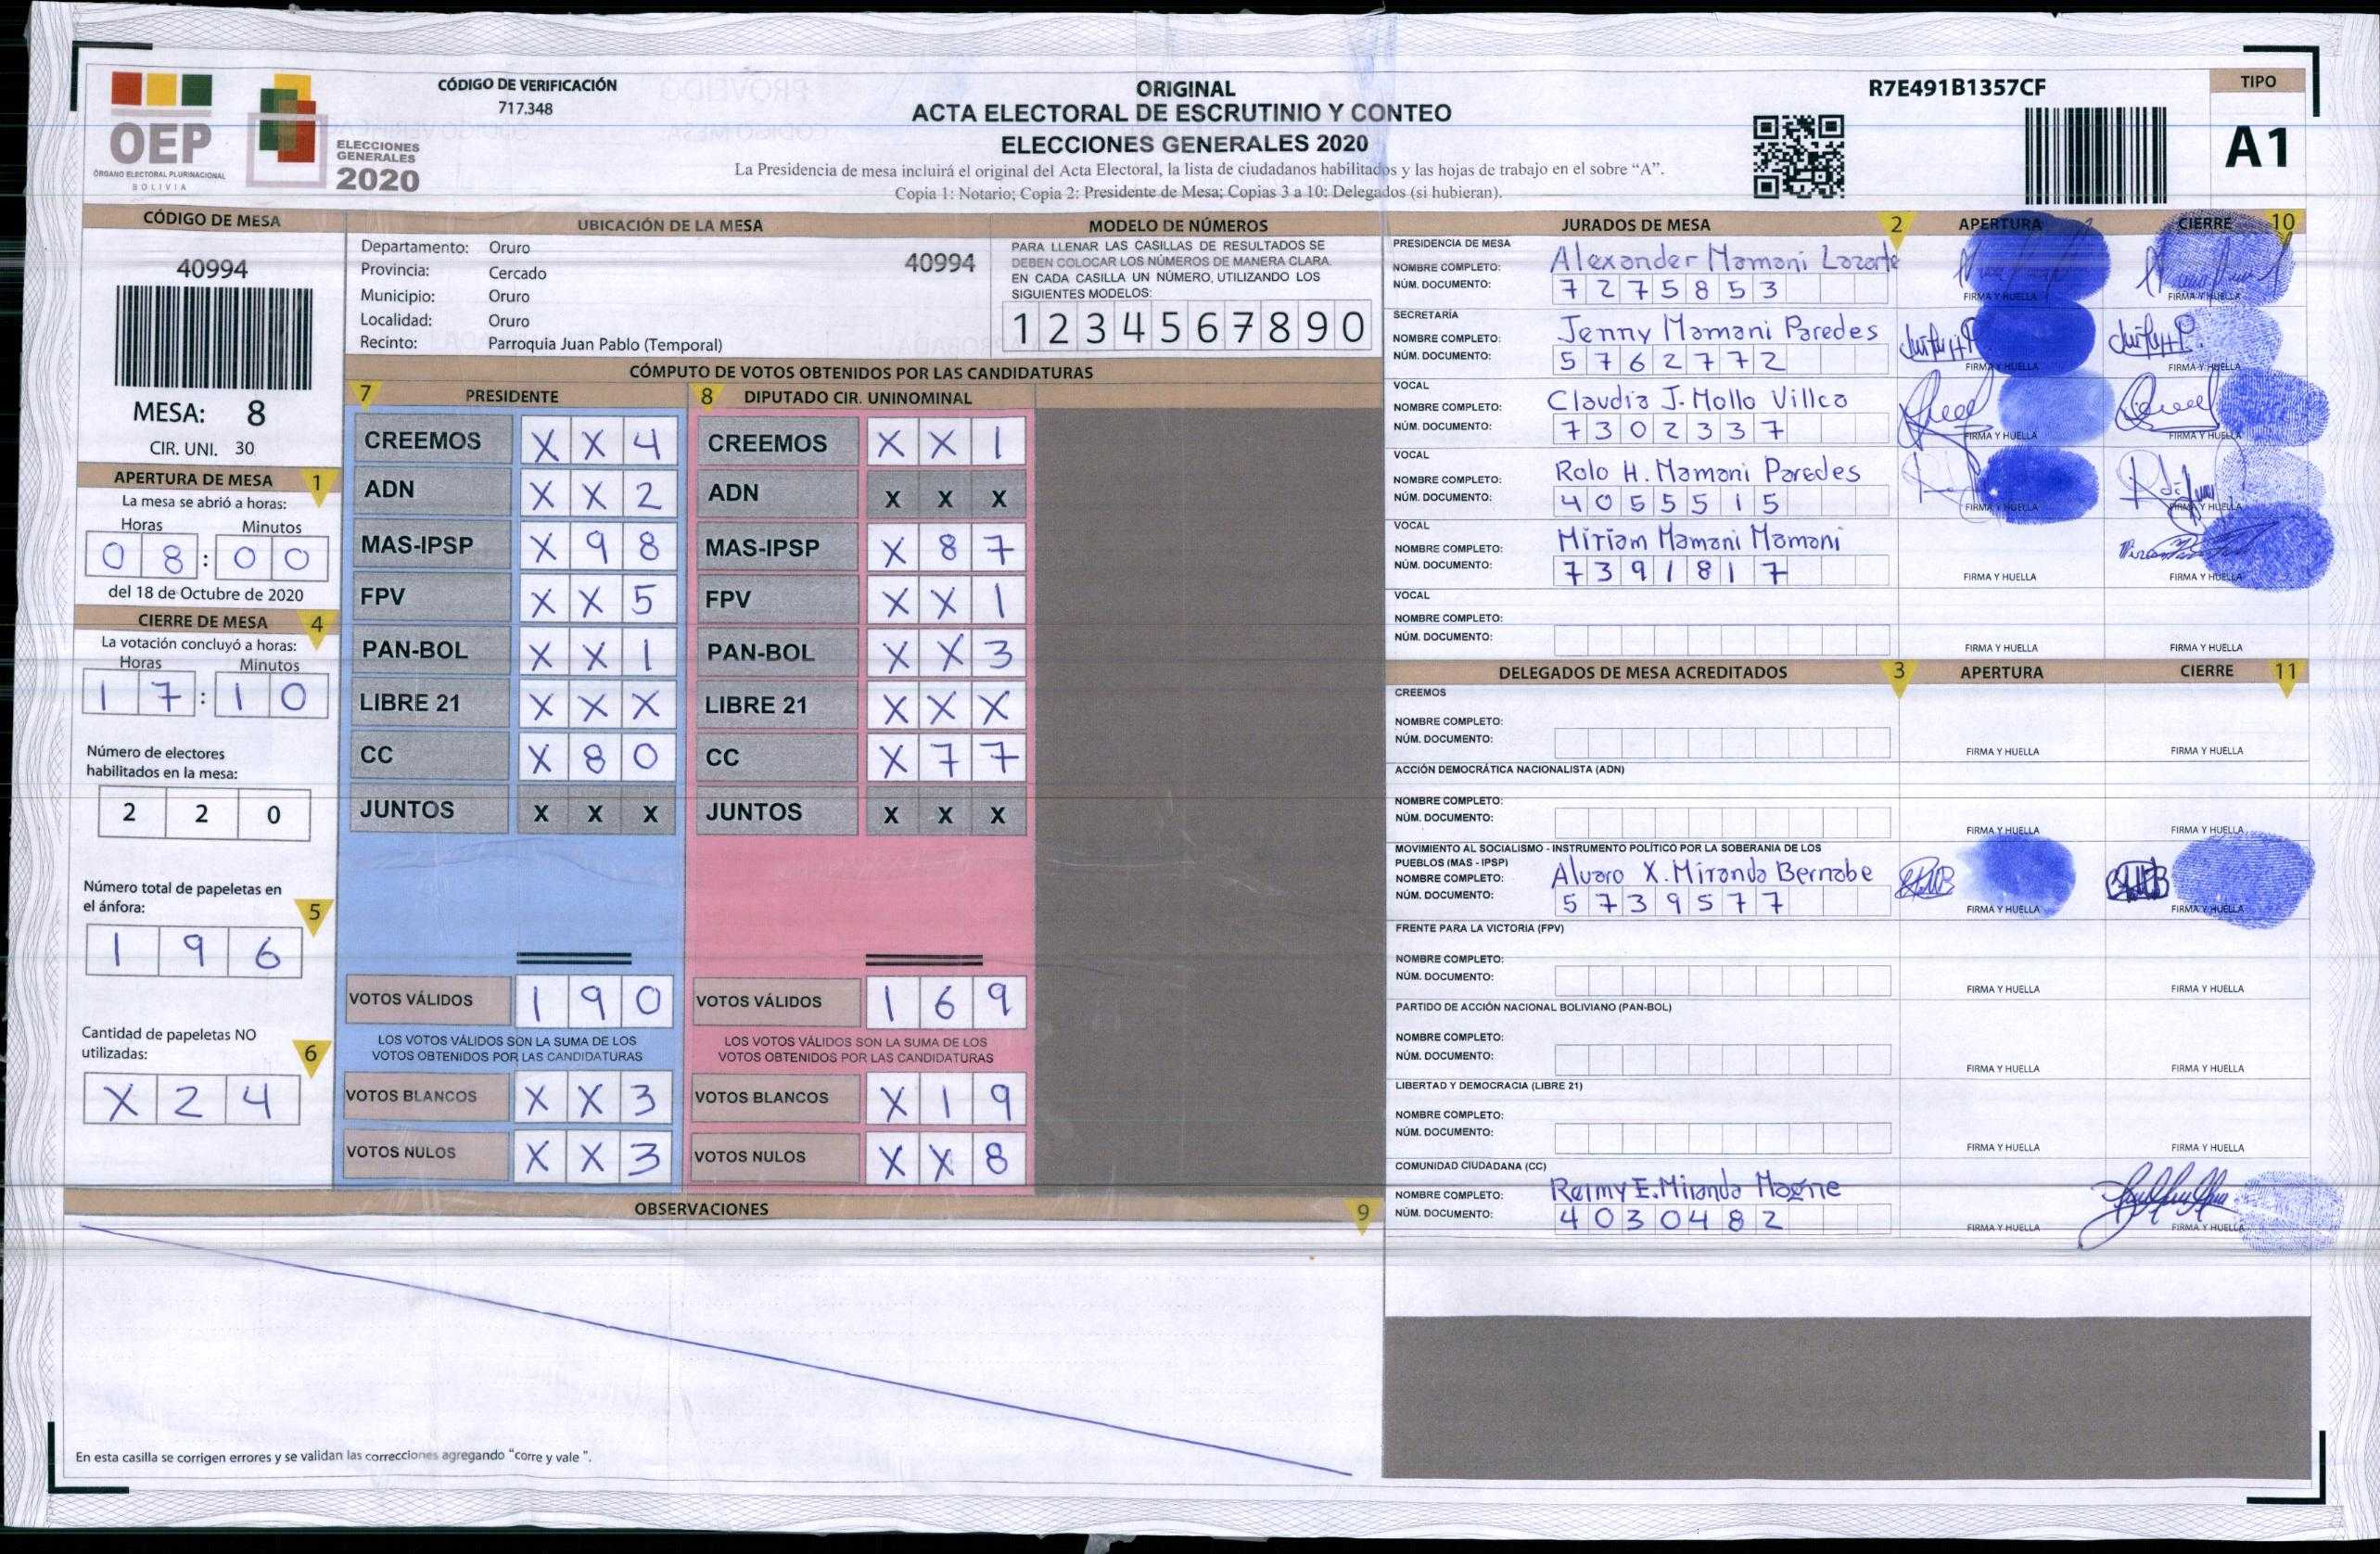 OEP
ÓRGANO ELECTORAL PLURINACIONAL
BOLIVIA
ELECCIONES
GENERALES
2020
CÓDIGO DE VERIFICACIÓN
717.348
ORIGINAL
ACTA ELECTORAL DE ESCRUTINIO Y CONTEO
ELECCIONES GENERALES 2020
La Presidencia de mesa incluirá el original del Acta Electoral, la lista de ciudadanos habilitados y las hojas de trabajo en el sobre “A”.
Copia 1: Notario; Copia 2: Presidente de Mesa; Copias 3 a 10: Delegados (si hubieran).
R7E491B1357CF
TIPO
A1
CÓDIGO DE MESA
40994
MESA: 8
CIR. UNI. 30
APERTURA DE MESA 1
La mesa se abrió a horas:
Horas Minutos
0 8 : 0 0
del 18 de Octubre de 2020
CIERRE DE MESA 4
La votación concluyó a horas:
Horas Minutos
1 7 : 1 0
Número de electores
habilitados en la mesa:
2 2 0
Número total de papeletas en
el ánfora: 5
1 9 6
Cantidad de papeletas NO
utilizadas: 6
X 2 4
UBICACIÓN DE LA MESA
Departamento: Oruro
40994
Provincia: Cercado
Municipio: Oruro
Localidad: Oruro
Recinto: Parroquia Juan Pablo (Temporal)
MODELO DE NÚMEROS
PARA LLENAR LAS CASILLAS DE RESULTADOS SE
DEBEN COLOCAR LOS NÚMEROS DE MANERA CLARA.
EN CADA CASILLA UN NÚMERO, UTILIZANDO LOS
SIGUIENTES MODELOS:
1 2 3 4 5 6 7 8 9 0
CÓMPUTO DE VOTOS OBTENIDOS POR LAS CANDIDATURAS
7 PRESIDENTE
CREEMOS X X 4
ADN X X 2
MAS-IPSP X 9 8
FPV X X 5
PAN-BOL X X 1
LIBRE 21 X X X
CC X 8 0
JUNTOS X X X
VOTOS VÁLIDOS 1 9 0
LOS VOTOS VÁLIDOS SON LA SUMA DE LOS
VOTOS OBTENIDOS POR LAS CANDIDATURAS
VOTOS BLANCOS X X 3
VOTOS NULOS X X 3
8 DIPUTADO CIR. UNINOMINAL
CREEMOS X X 1
ADN X X X
MAS-IPSP X 8 7
FPV X X 1
PAN-BOL X X 3
LIBRE 21 X X X
CC X 7 7
JUNTOS X X X
VOTOS VÁLIDOS 1 6 9
LOS VOTOS VÁLIDOS SON LA SUMA DE LOS
VOTOS OBTENIDOS POR LAS CANDIDATURAS
VOTOS BLANCOS X 1 9
VOTOS NULOS X X 8
OBSERVACIONES 9
En esta casilla se corrigen errores y se validan las correcciones agregando "corre y vale ".
JURADOS DE MESA 2 APERTURA CIERRE 10
PRESIDENCIA DE MESA
NOMBRE COMPLETO: Alexander Mamani Lazarte
NÚM. DOCUMENTO: 7 2 7 5 8 5 3
FIRMA Y HUELLA FIRMA Y HUELLA
SECRETARÍA
NOMBRE COMPLETO: Jenny Mamani Paredes
NÚM. DOCUMENTO: 5 7 6 2 7 7 2
FIRMA Y HUELLA FIRMA Y HUELLA
VOCAL
NOMBRE COMPLETO: Claudia J. Mollo Villca
NÚM. DOCUMENTO: 7 3 0 2 3 3 7
FIRMA Y HUELLA FIRMA Y HUELLA
VOCAL
NOMBRE COMPLETO: Rolo H. Mamani Paredes
NÚM. DOCUMENTO: 4 0 5 5 5 1 5
FIRMA Y HUELLA FIRMA Y HUELLA
VOCAL
NOMBRE COMPLETO: Miriam Mamani Mamani
NÚM. DOCUMENTO: 7 3 9 1 8 1 7
FIRMA Y HUELLA FIRMA Y HUELLA
VOCAL
NOMBRE COMPLETO:
NÚM. DOCUMENTO:
FIRMA Y HUELLA FIRMA Y HUELLA
DELEGADOS DE MESA ACREDITADOS 3 APERTURA CIERRE 11
CREEMOS
NOMBRE COMPLETO:
NÚM. DOCUMENTO:
FIRMA Y HUELLA FIRMA Y HUELLA
ACCIÓN DEMOCRÁTICA NACIONALISTA (ADN)
NOMBRE COMPLETO:
NÚM. DOCUMENTO:
FIRMA Y HUELLA FIRMA Y HUELLA
MOVIMIENTO AL SOCIALISMO - INSTRUMENTO POLÍTICO POR LA SOBERANIA DE LOS
PUEBLOS (MAS - IPSP)
NOMBRE COMPLETO: Alvaro X. Miranda Bernabe
NÚM. DOCUMENTO: 5 7 3 9 5 7 7
FIRMA Y HUELLA FIRMA Y HUELLA
FRENTE PARA LA VICTORIA (FPV)
NOMBRE COMPLETO:
NÚM. DOCUMENTO:
FIRMA Y HUELLA FIRMA Y HUELLA
PARTIDO DE ACCIÓN NACIONAL BOLIVIANO (PAN-BOL)
NOMBRE COMPLETO:
NÚM. DOCUMENTO:
FIRMA Y HUELLA FIRMA Y HUELLA
LIBERTAD Y DEMOCRACIA (LIBRE 21)
NOMBRE COMPLETO:
NÚM. DOCUMENTO:
FIRMA Y HUELLA FIRMA Y HUELLA
COMUNIDAD CIUDADANA (CC)
NOMBRE COMPLETO: Reimy E. Miranda Magne
NÚM. DOCUMENTO: 4 0 3 0 4 8 2
FIRMA Y HUELLA FIRMA Y HUELLA